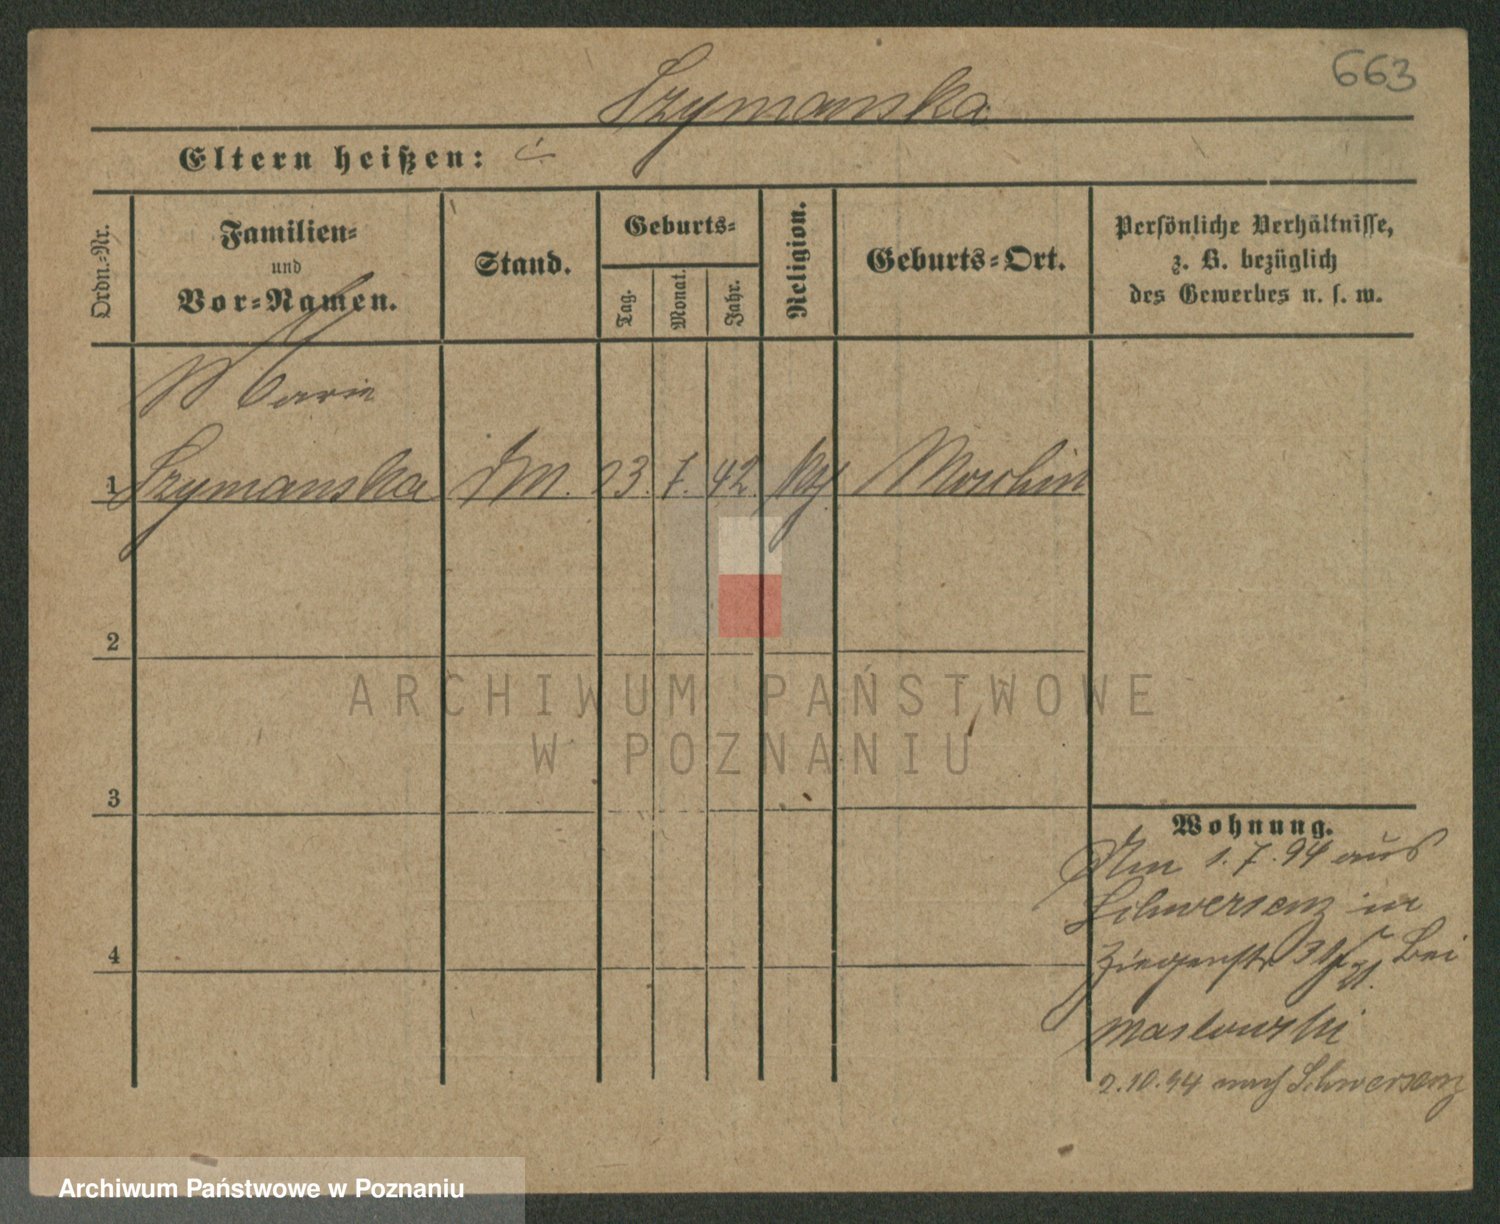 663
Szymanska
Eltern heißen:
Ordn.-Nr.
Familien-
und
Vor-Namen.
Stand.
Geburts-
Tag.
Monat.
Jahr.
Religion.
Geburts-Ort.
Persönliche Verhältnisse,
z. B. bezüglich
des Gewerbes u. s. w.
Marie
1 Szymanska 13. 7. 42. Moschin
2
ARCHIWUM PAŃSTWOWE
W POZNANIU
3
Wohnung.
1.7.94 aus
Schwersenz in
Ziegenstr bei
Maslowski
2.10.94 nach Schwersenz
4
Archiwum Państwowe w Poznaniu